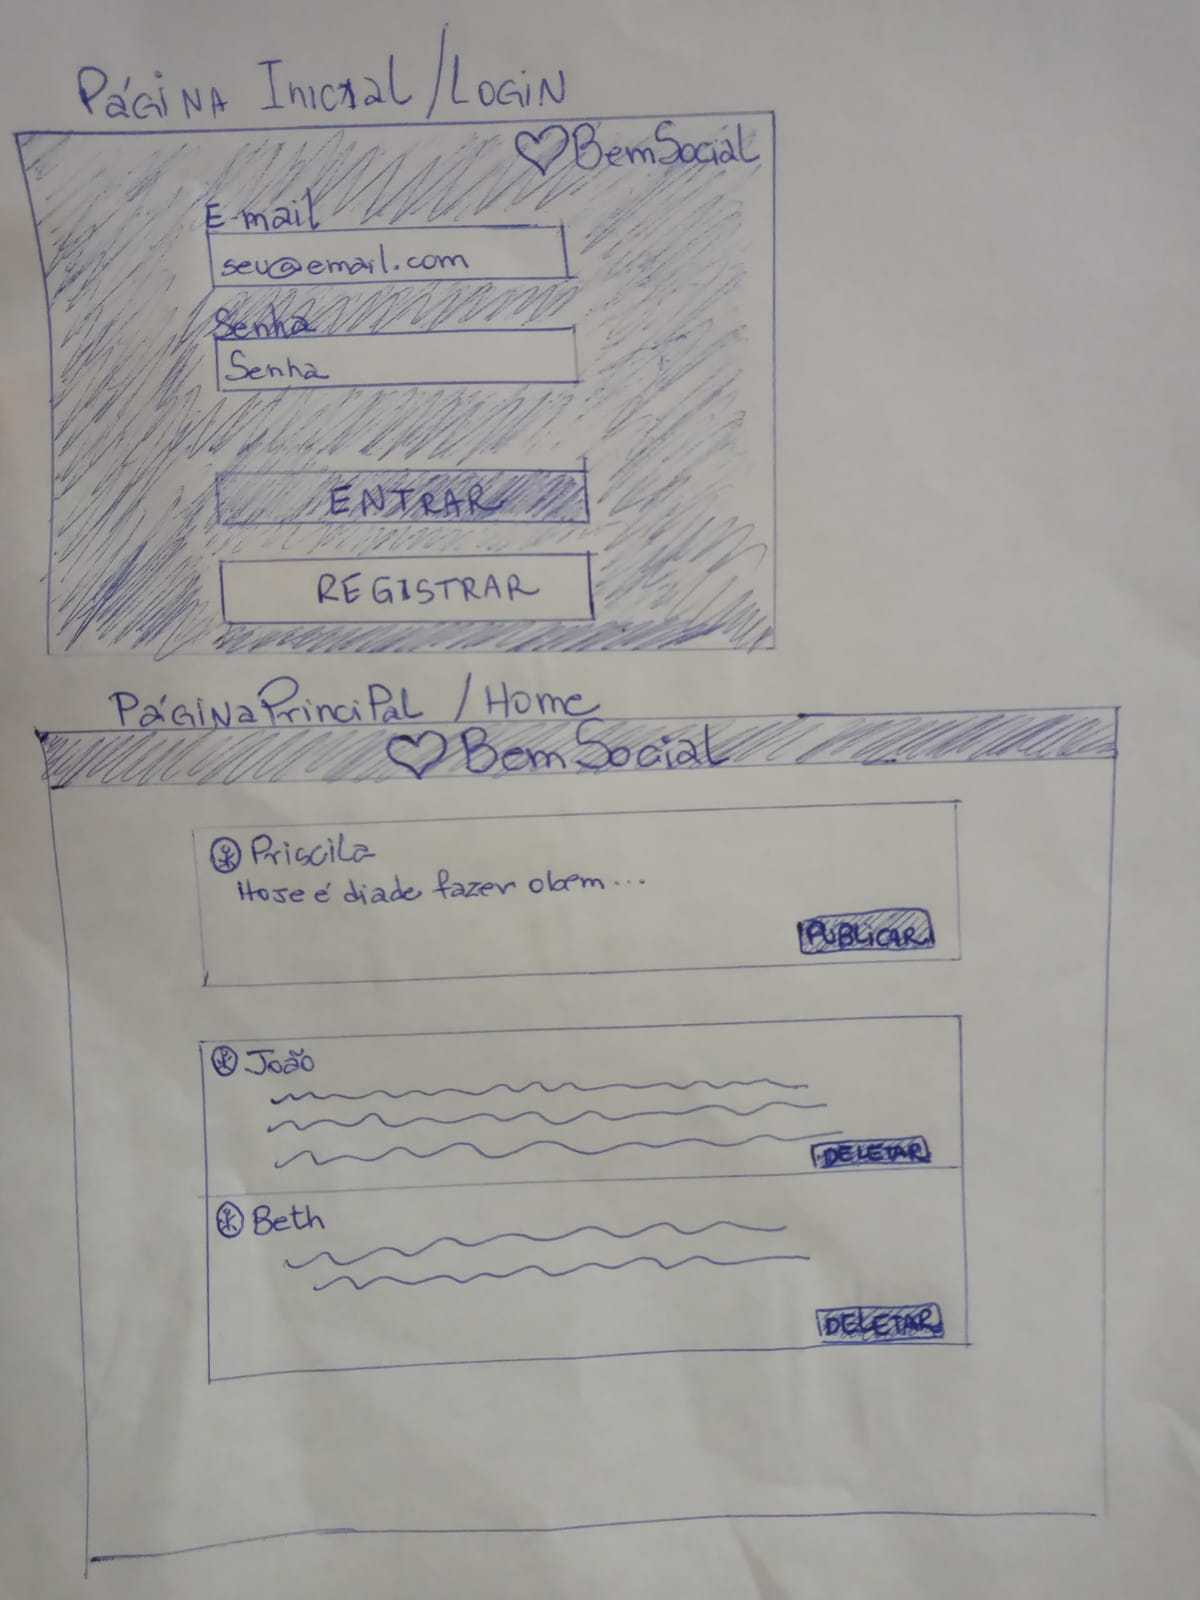 Página Inicial/Login
BemSocial
E-mail
seu@email.com
Senha
Senha
ENTRAR
REGISTRAR
Página Principal / Home
BemSocial
Priscila
Hoje é dia de fazer o bem...
PUBLICAR
João
DELETAR
Beth
DELETAR